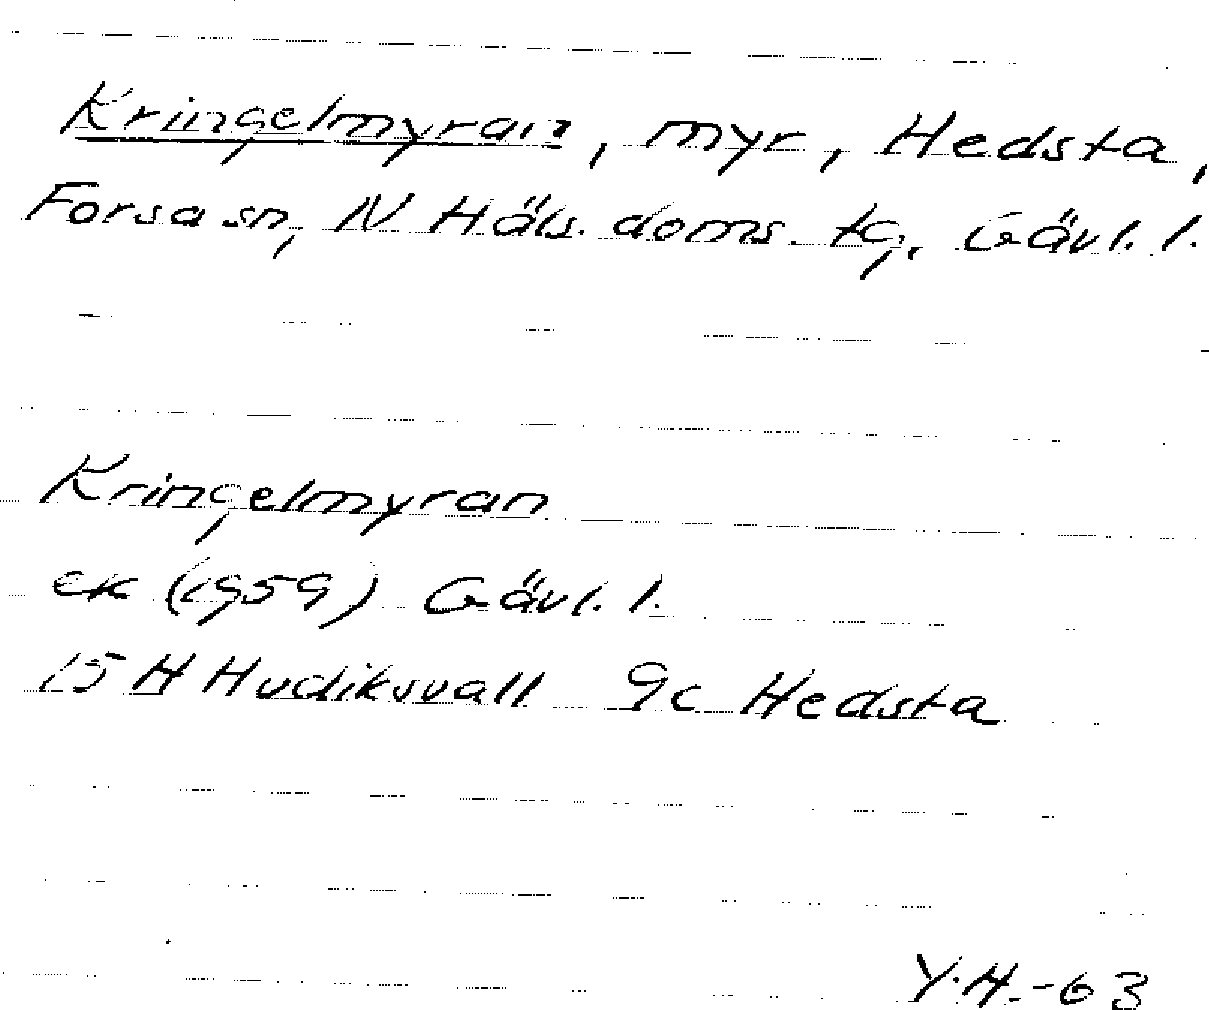 Kringelmyran, myr, Hedsta,
Forsa sn, N Häls. doms. tg, Gävl. l.
Kringelmyran
ek (1959) Gävl. l.
15 H Hudiksvall 9c Hedsta
Y.H.-63